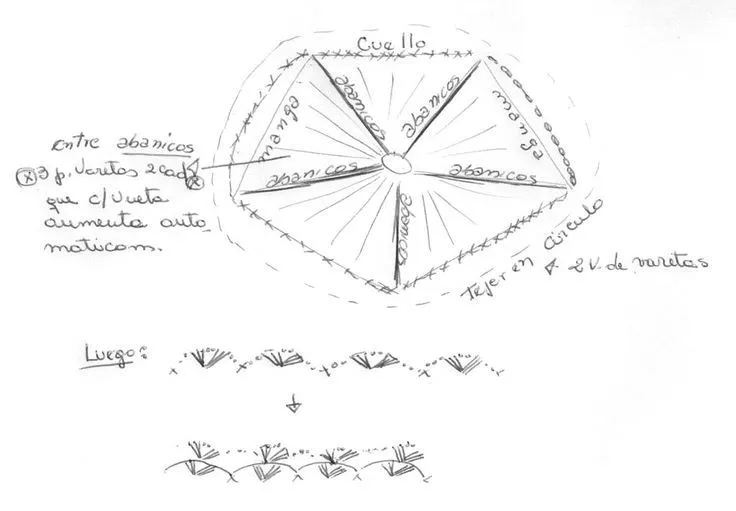 Cuello
manga
abanicos
abanicos
manga
entre abanicos
abanicos
abanicos
abanicos
x 3 p. varetas 2 cad x
que c/vuelta
aumenta auto
maticam.
Tejer en círculo
2 v. de varetas
Luego: